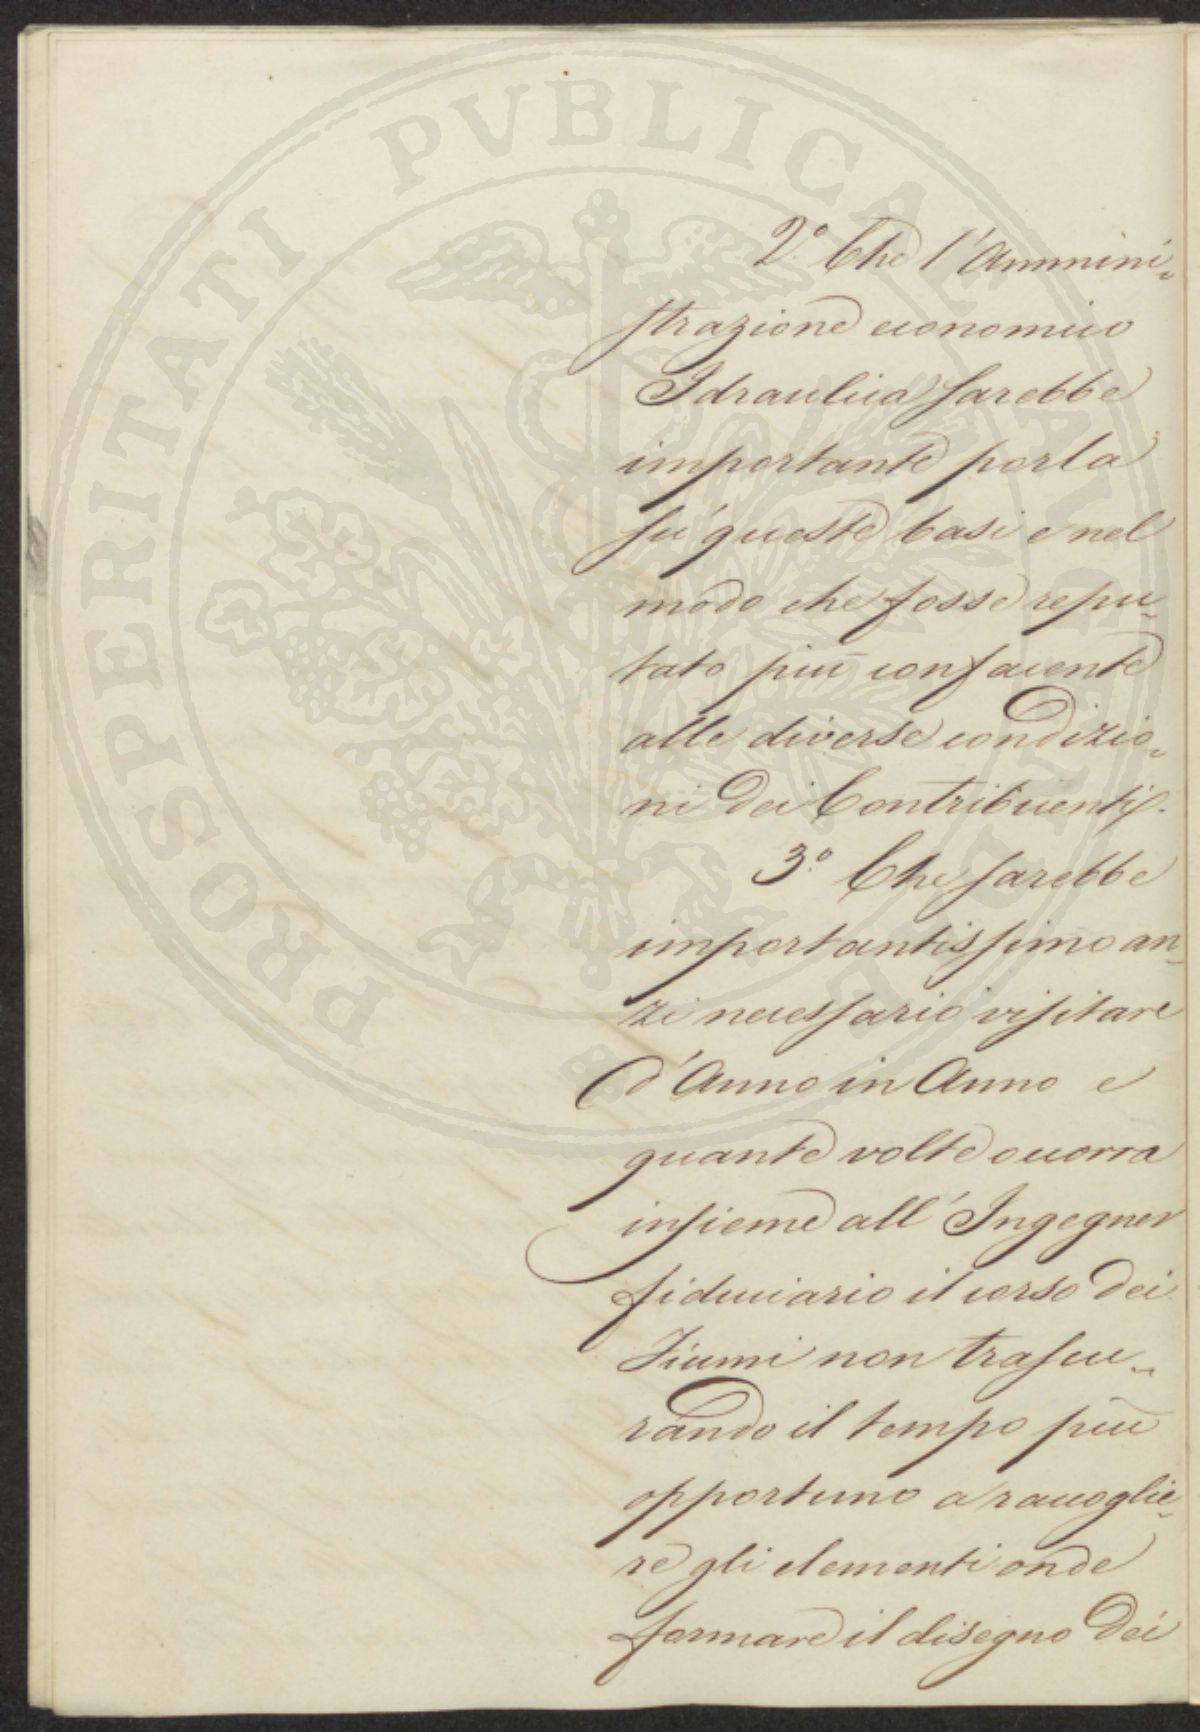 PROSPERITATI PVBLICAE AVGENDAE
2.° Che l'Ammini-
strazione economico
Idraulica sarebbe
importante porla
su queste basi e nel
modo che fosse repu-
tato più confacente
alle diverse condizio-
ni dei Contribuenti.
3.° Che sarebbe
importantissimo an-
zi necessario visitare
d'Anno in Anno e
quante volte occorra
insieme all'Ingegner
fiduciario il corso dei
Fiumi non trascu-
rando il tempo più
opportuno a raccoglie-
re gli elementi onde
formare il disegno dei